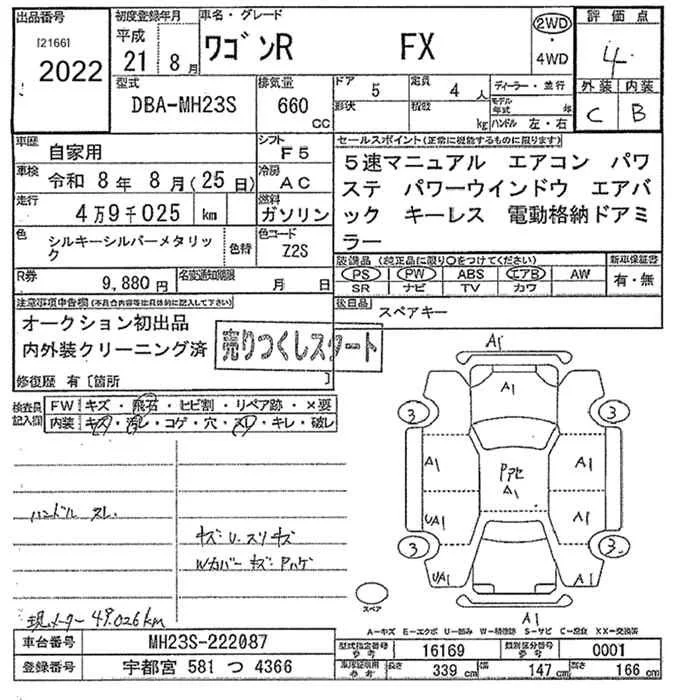 出品番号 初度登録年月 車名・グレード 評価点
[2166] 平成 2WD
2022 21 8月 ワゴンR FX ・ 4
4WD
型式 排気量 ドア 5 定員 4人 ディーラー・並行 外装 内装
DBA-MH23S 660 CC 形状 積載 kg モデル年式 年 C B
ハンドル 左・右
車歴 自家用 シフト F5 セールスポイント(正常に機能するものに限ります)
車検 令和 8年 8月(25日) 冷房 AC 5速マニュアル エアコン パワ
ステ パワーウインドウ エアバ
走行 4万9千025 km 燃料 ガソリン ック キーレス 電動格納ドアミ
ラー
色 シルキーシルバーメタリック 色替 色コード Z2S
装備品(純正品に限り○をつけてください) 新車保証書
R券 9,880円 名変通知期限 月 日 PS PW ABS エアB AW 有・無
SR ナビ TV カワ
注意事項申告欄(不具合内容等は具体的に記入して下さい) 後日品 スペアキー
オークション初出品
内外装クリーニング済 売りつくしスタート
修復歴 有〔箇所 〕
検査員記入欄 FW キズ・飛石・ヒビ割・リペア跡・×要
内装 キズ・汚レ・コゲ・穴・スレ・キレ・破レ
A1
A1
3 3
A1 Pアセ A1 A1
ハンドル スレ
UA1 A1
キズ・U・スリキズ
3 3
Wカバー キズ・Pハゲ
UA1 A1
スペア
現メーター 49,026km A1
A-キズ E-エクボ U-凹み W-補修跡 S-サビ C-腐食 XX-交換済
車台番号 MH23S-222087 型式指定番号 参考 16169 類別区分番号 参考 0001
登録番号 宇都宮 581 つ 4366 車庫証明用 参考 長さ 339 cm 幅 147 cm 高さ 166 cm